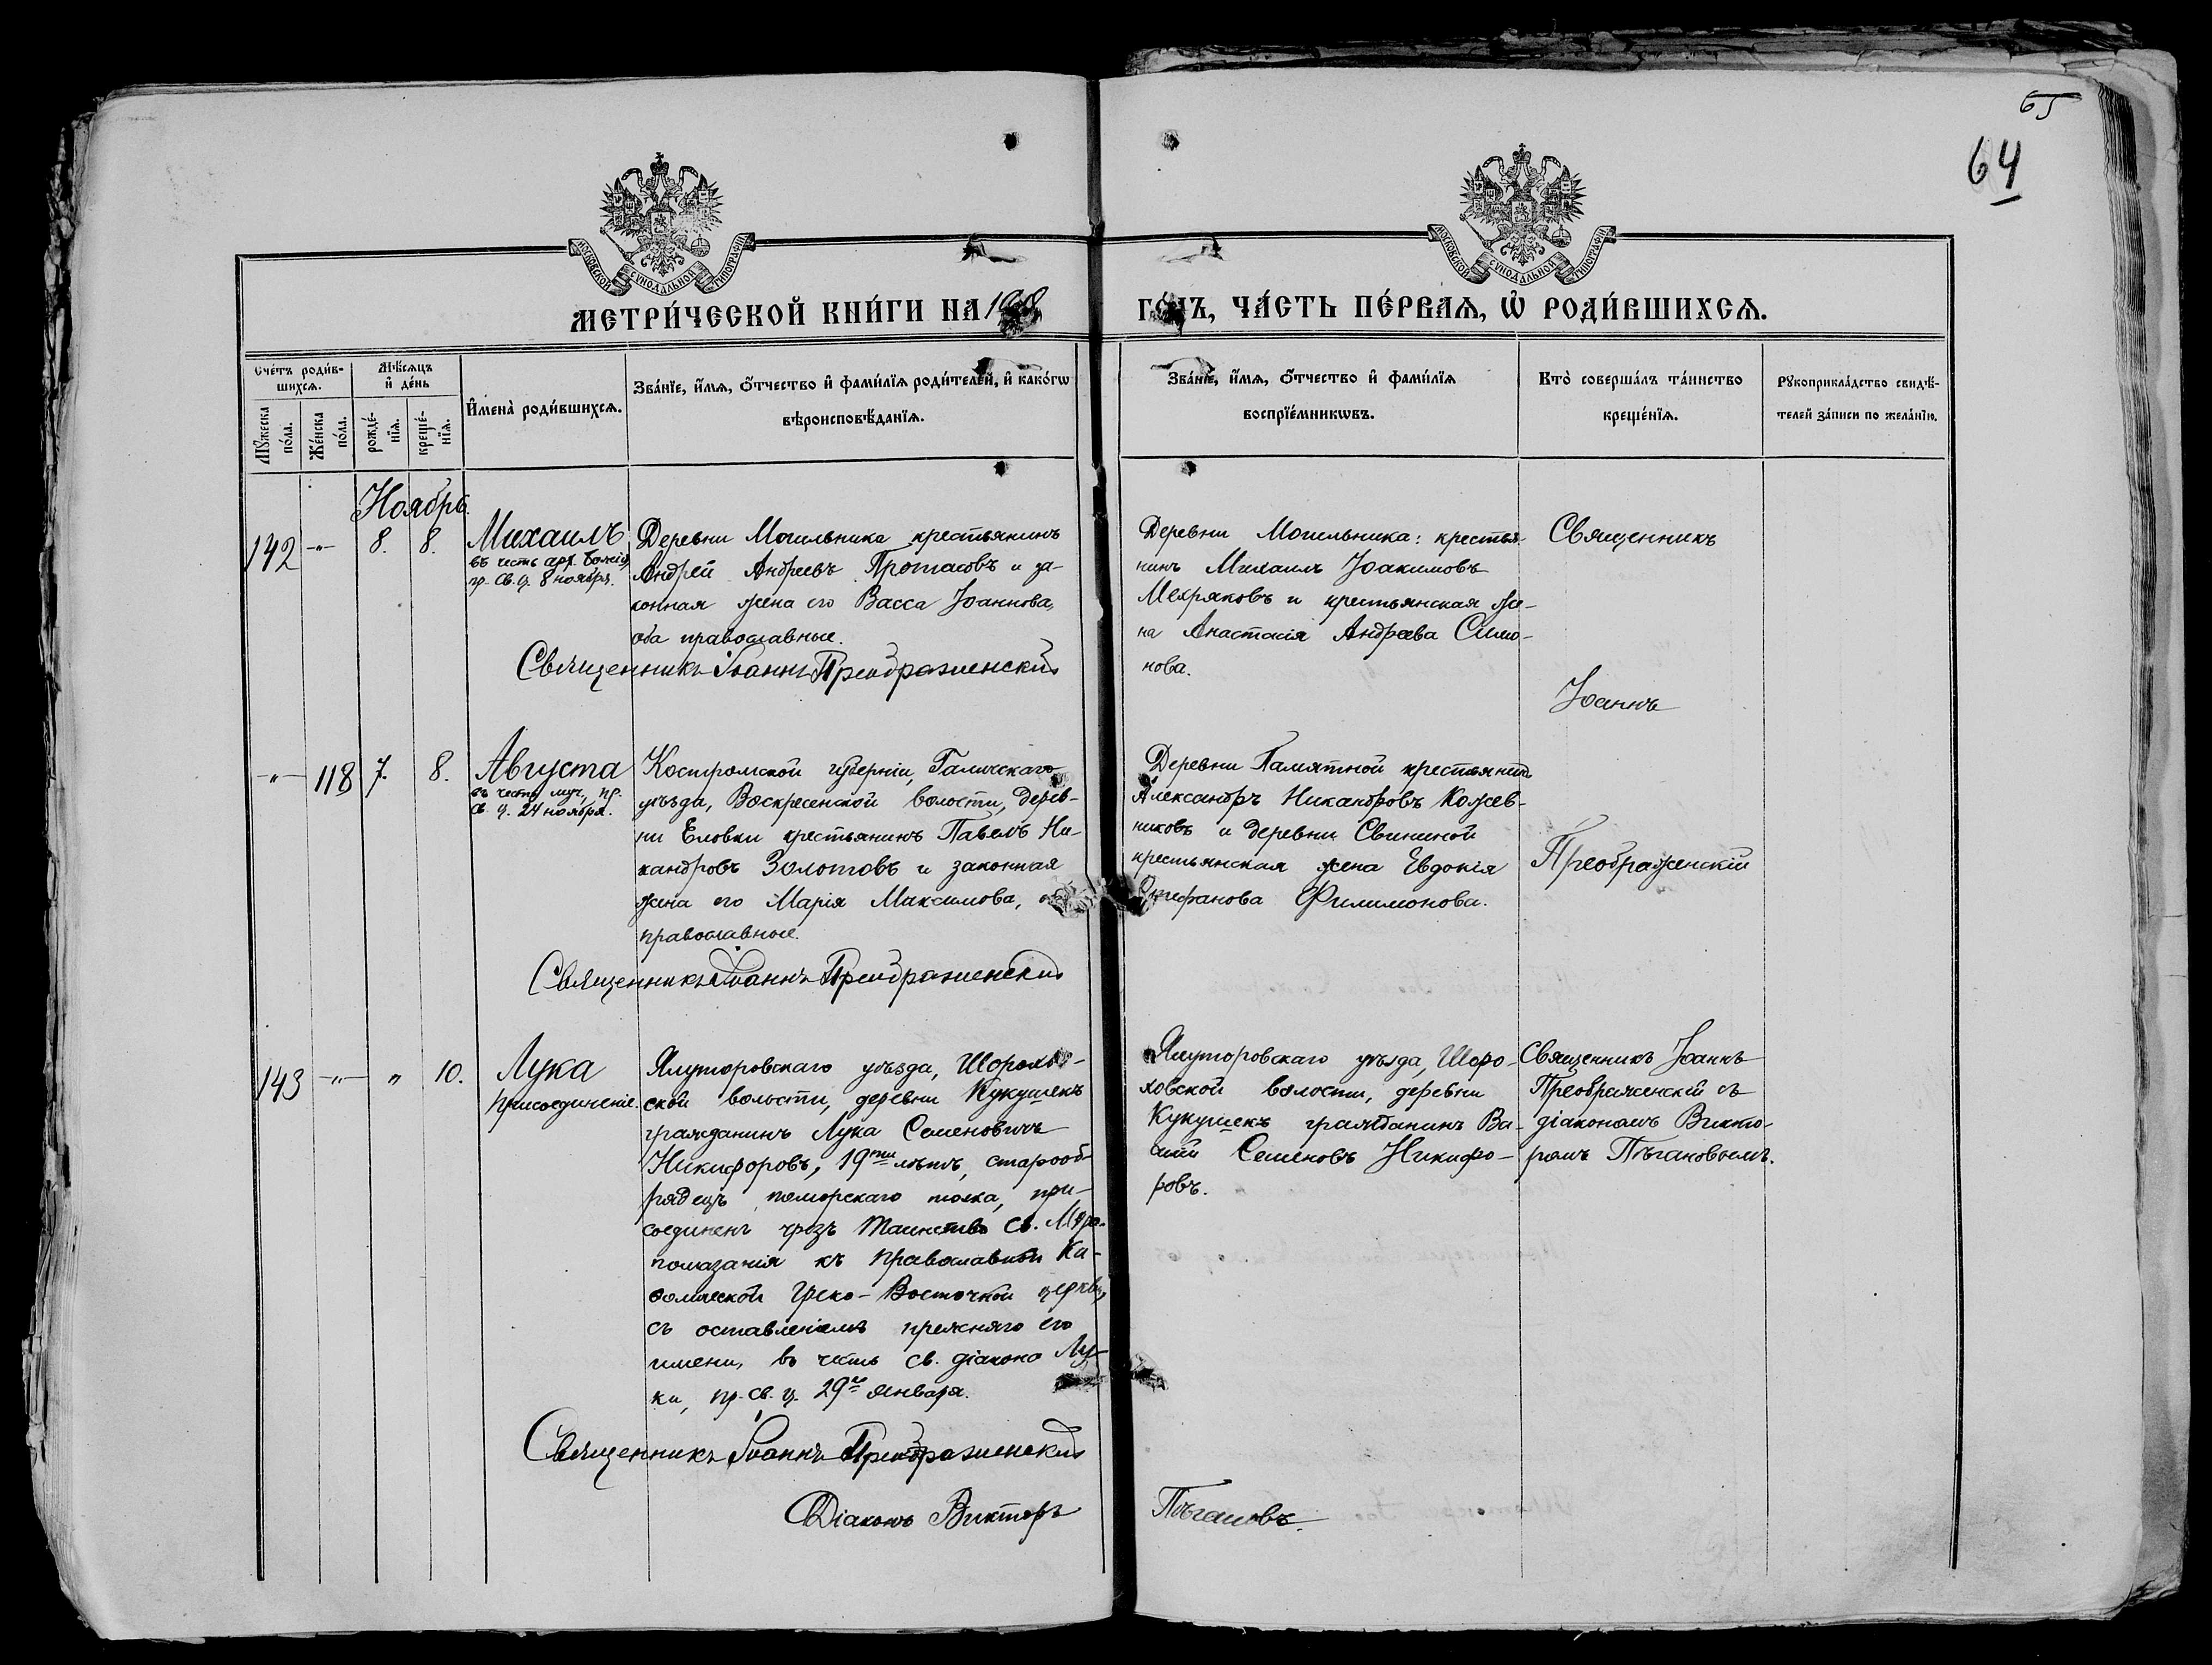 65
64
МОСКОВСКОЙ СѴНОДАЛЬНОЙ ТИПОГРАФІИ
МОСКОВСКОЙ СѴНОДАЛЬНОЙ ТИПОГРАФІИ
МЕТРИ́ЧЕСКОЙ КНИ́ГИ НА
ГО́ДЪ, ЧА́СТЬ ПЕ́РВАѦ, Ѽ РОДИ́ВШИХСѦ.
Сче́тъ роди́в-
шихсѧ.
Мꙋ́жеска
по́ла.
Же́нска
по́ла.
Мѣ́сѧцъ
и҆ де́нь
рожде́-
нїѧ.
креще́-
нїѧ.
И҆мена̀ роди́вшихсѧ.
Зва́нїе, и҆́мѧ, ѻ҆́тчество и҆ фами́лїѧ роди́телей, и҆ како́гѡ
вѣроисповѣ́данїѧ.
Зва́нїе, и҆́мѧ, ѻ҆́тчество и҆ фами́лїѧ
воспрїе́мникѡвъ.
Кто̀ соверша́лъ та́инство
креще́нїѧ.
Рꙋкоприкла́дство свидѣ́-
телей за́писи по жела́нїю.
Ноябрь.
142 -"- 8. 8.
Михаилъ
въ честь арх. Божія
пр. Св. Ц. 8 ноября.
Деревни Могильника крестьянинъ
Андрей Андреевъ Протасовъ и за-
конная жена его Васса Іоаннова,
оба православные.
Священникъ Іоаннъ Преображенскій
Деревни Могильника: крестья-
нинъ Михаилъ Іоакимовъ
Мехряковъ и крестьянская же-
на Анастасія Андреева Симо-
нова.
Священникъ
Іоаннъ
Преображенскій
-"- 118 7. 8.
Августа
въ честь муч., пр.
Св. Ц. 24 ноября.
Костромской губерніи, Галичскаго
уѣзда, Воскресенской волости, дерев-
ни Еловки крестьянинъ Павелъ Ни-
кандровъ Золотовъ и законная
жена его Марія Максимова,
православные.
Священникъ Іоаннъ Преображенскій
Деревни Памятной крестьянинъ
Александръ Никандровъ Кожев-
никовъ и деревни Свининой
крестьянская жена Евдокія
Стефанова Филимонова.
143 -"- " 10.
Лука
присоединеніе.
Ялуторовскаго уѣзда, Шорохов-
ской волости, деревни Кукушекъ
гражданинъ Лука Семеновичъ
Никифоровъ, 19ти лѣтъ, старооб-
рядецъ поморскаго толка, при-
соединенъ чрезъ Таинство Св. Мѵро-
помазанія къ православной Ка-
ѳолической Греко-Восточной церкви,
съ оставленіемъ прежняго его
имени, въ честь св. діакона Лу-
ки, пр. Св. Ц. 29го января.
Священникъ Іоаннъ Преображенскій
Діаконъ Викторъ Пѣгановъ.
Ялуторовскаго уѣзда, Шоро-
ховской волости, деревни
Кукушекъ гражданинъ Ва-
силій Семеновъ Никифо-
ровъ.
Священникъ Іоаннъ
Преображенскій съ
діакономъ Викто-
ромъ Пѣгановымъ.